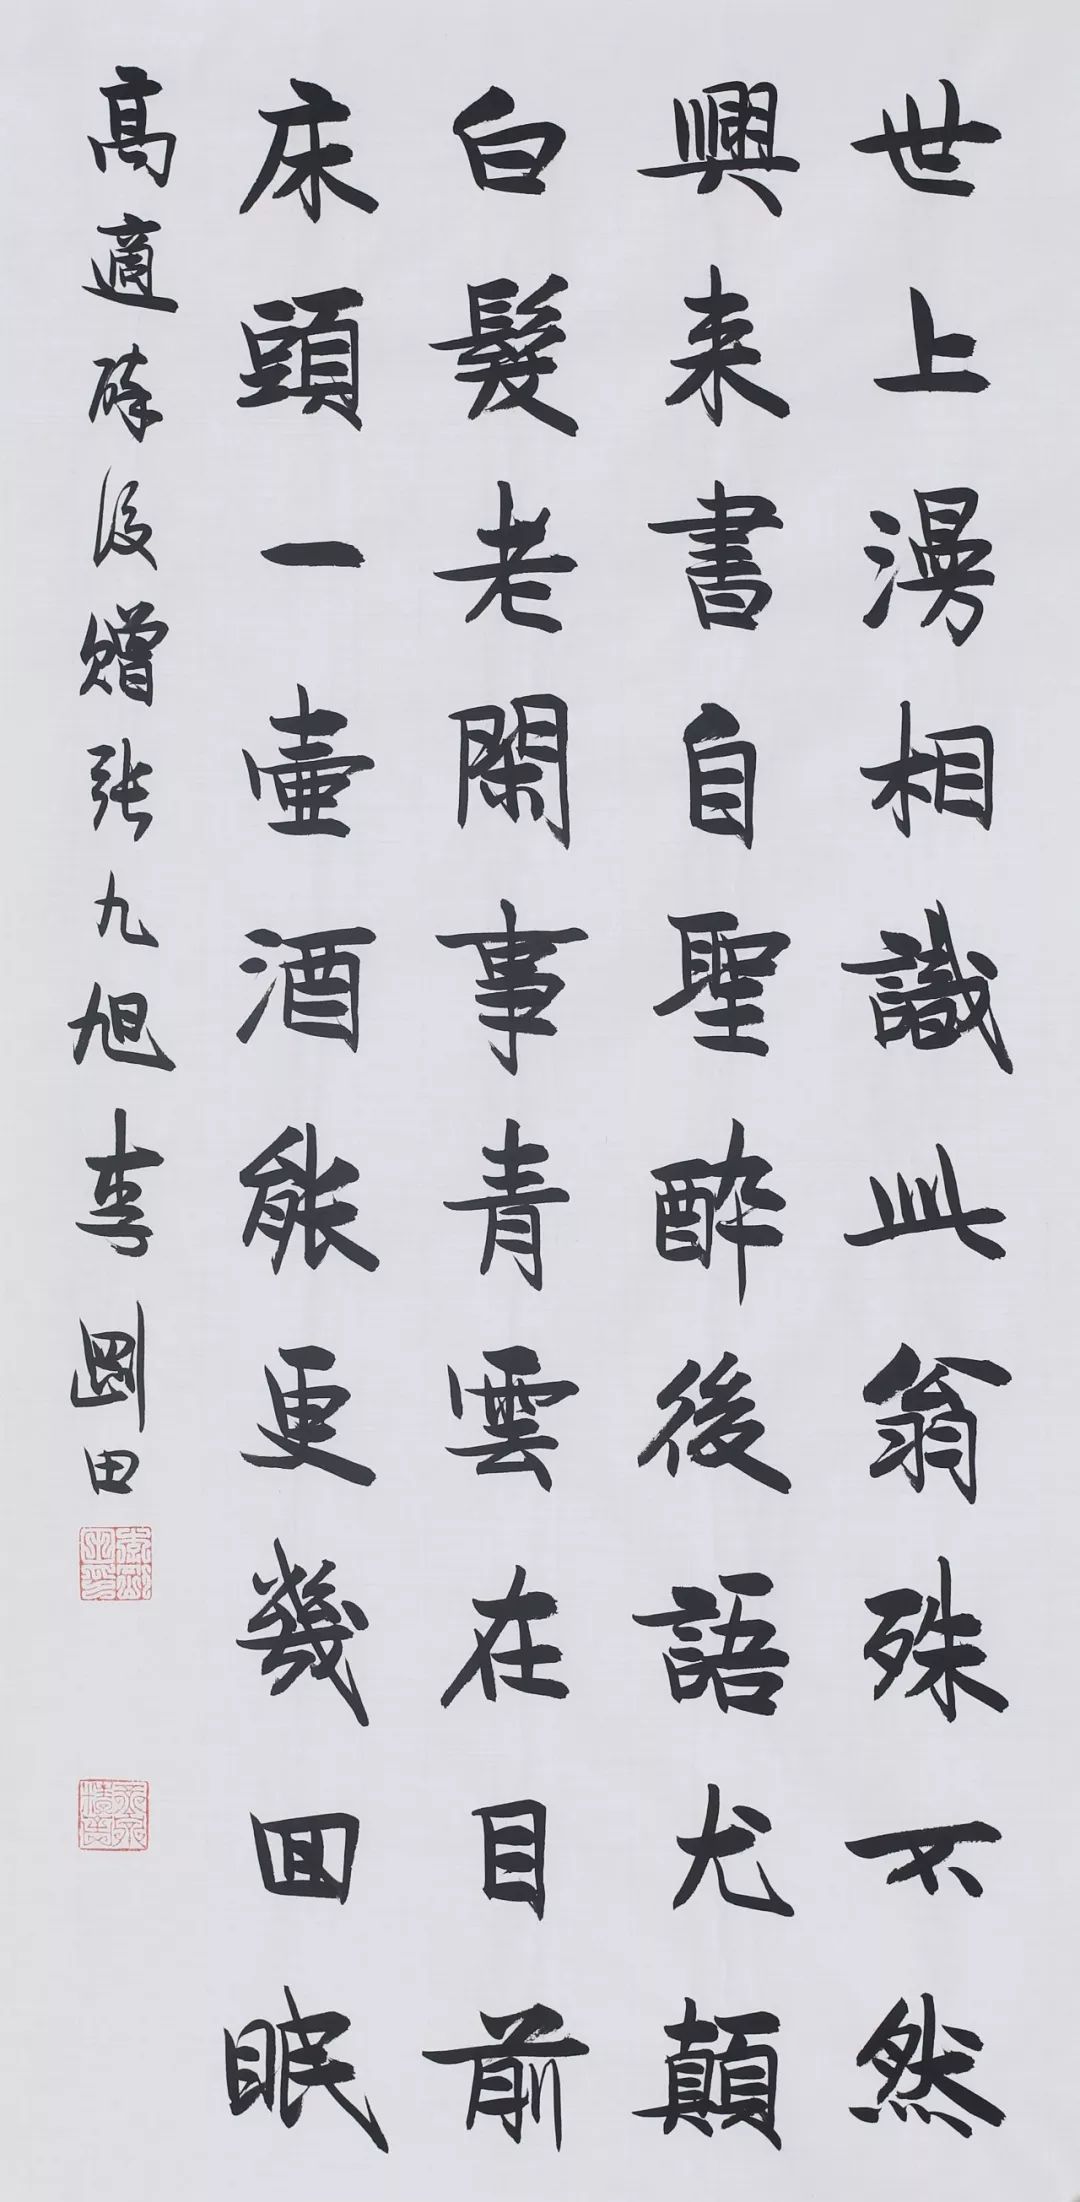 世上漫相識此翁殊不然
興来書自聖醉後語尤顛
白髮老閑事青雲在目前
床頭一壺酒能更幾回眠
高適醉後贈張九旭李剛田